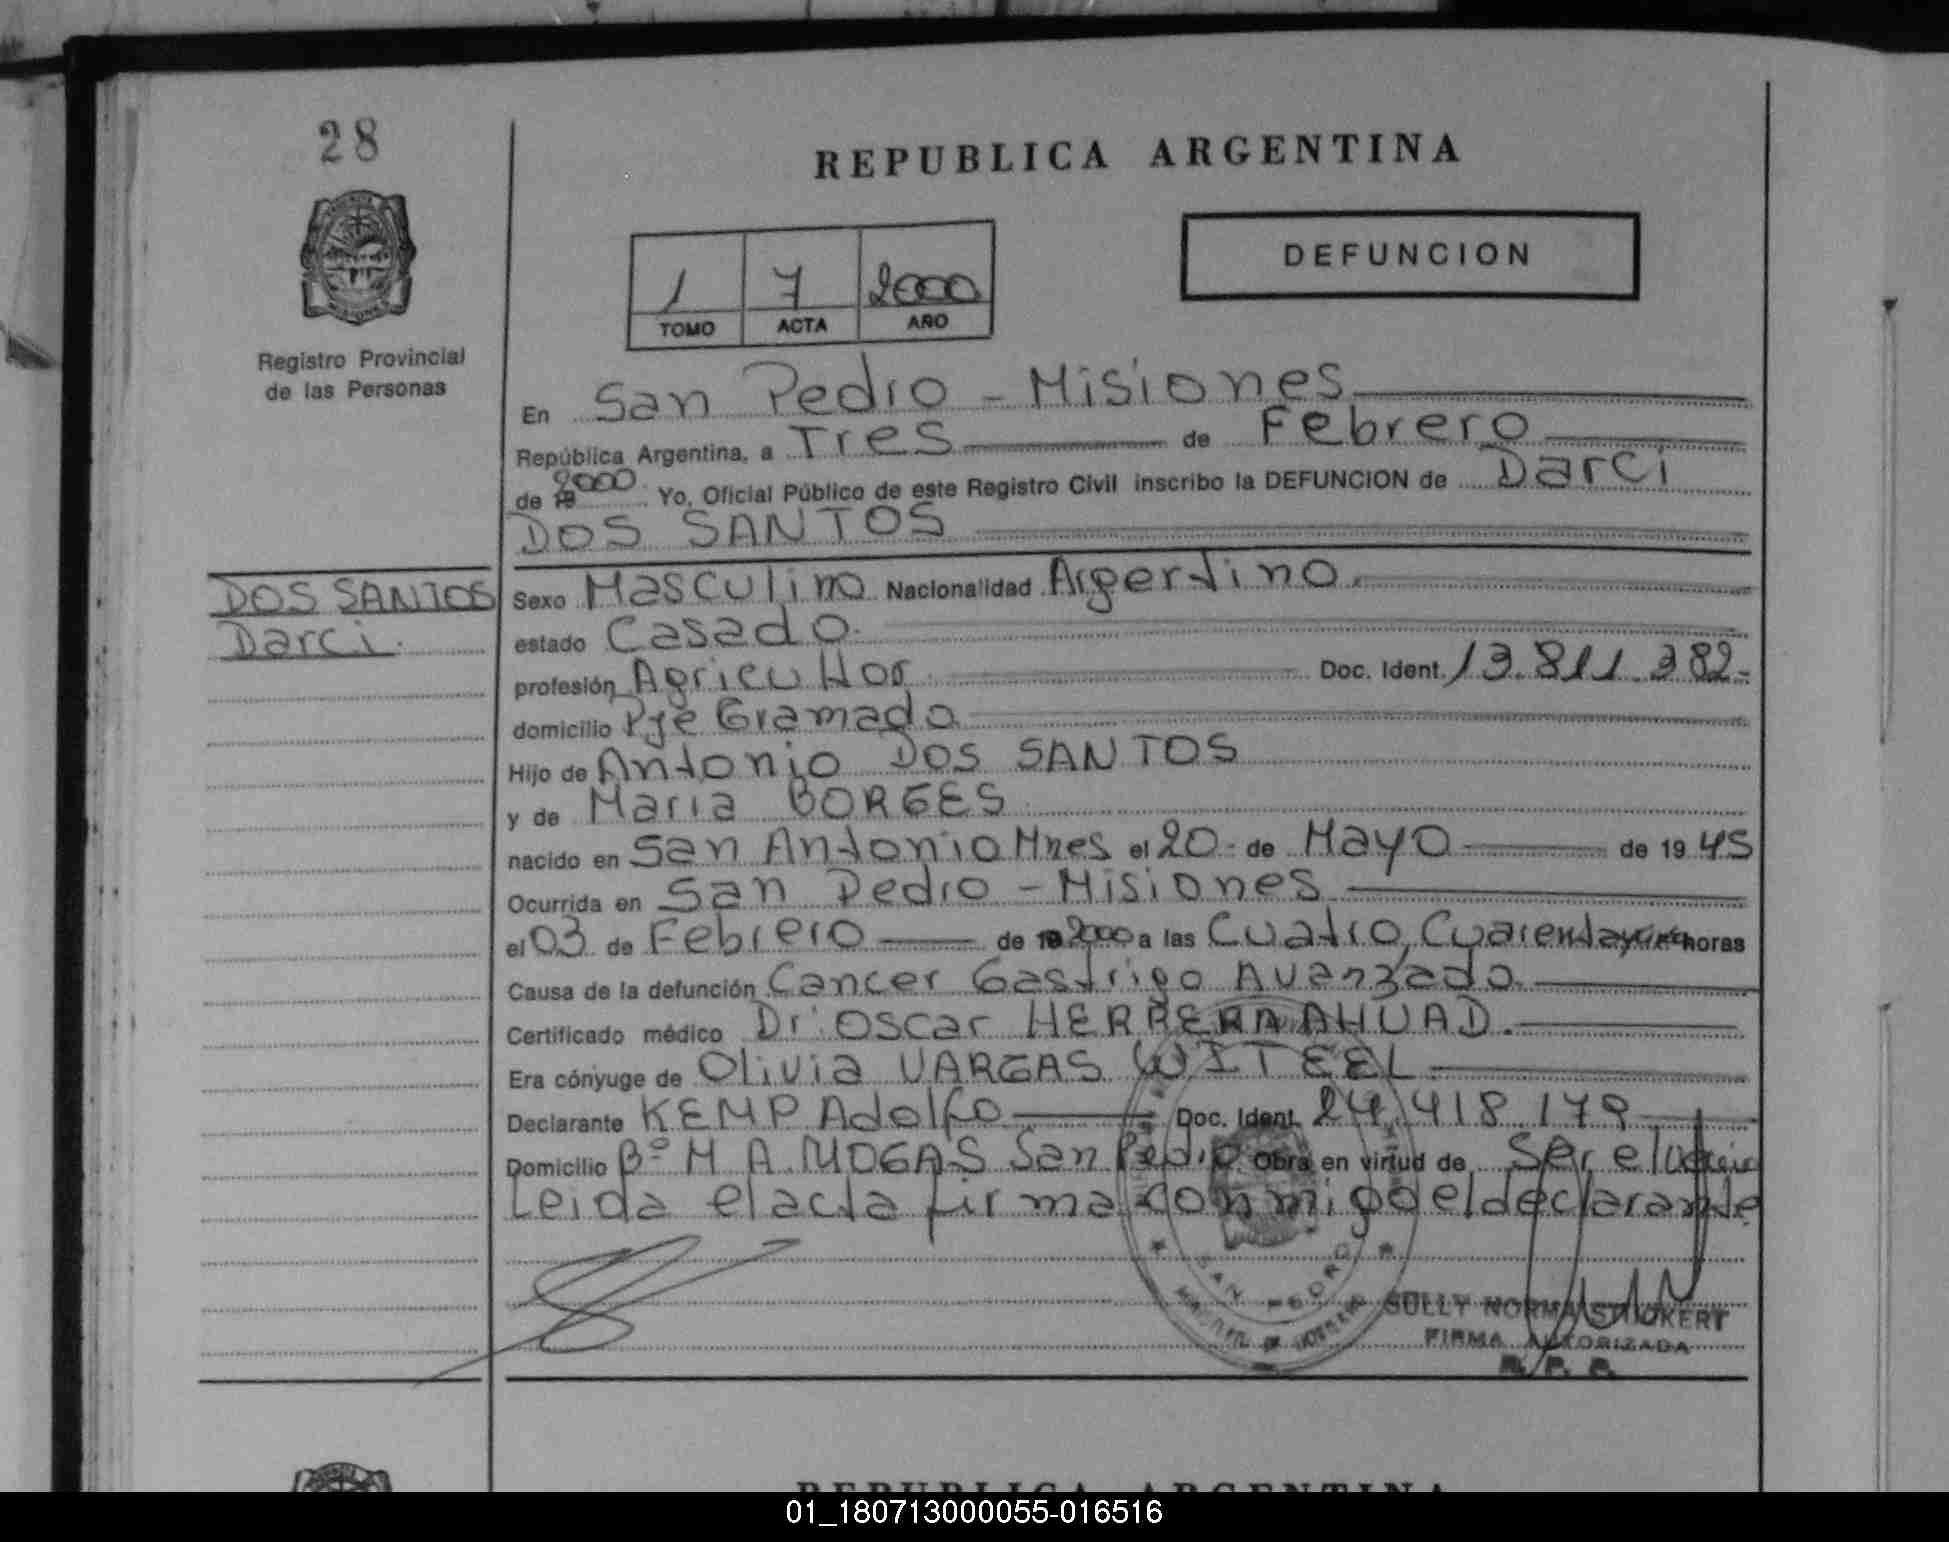 28
REPUBLICA ARGENTINA
DEFUNCION
1 7 2000
TOMO ACTA AÑO
Registro Provincial
de las Personas
En San Pedro - Misiones
República Argentina, a Tres de Febrero
de 19 2000 Yo, Oficial Público de este Registro Civil inscribo la DEFUNCION de Darci
DOS SANTOS
DOS SANTOS
Darci.
Sexo Masculino Nacionalidad Argentino.
estado Casado.
profesión Agricultor Doc. Ident. 13.811.382-
domicilio Pje Gramado
Hijo de Antonio DOS SANTOS
y de Maria BORGES
nacido en San Antonio Mnes el 20- de Mayo de 19 45
Ocurrida en San Pedro - Misiones
el 03 de Febrero de 19 2000 a las Cuatro, Cuarenta horas
Causa de la defunción Cancer Gastrigo Avanzado
Certificado médico Dr. Oscar HERRERA AHUAD.
Era cónyuge de Olivia VARGAS WITEEL
Declarante KEMP Adolfo Doc. Ident. 24.418.179
Domicilio Bº M A MOGAS San Pedro Obra en virtud de Ser el
Leida el acta firma conmigo el declarante
SAN PEDRO
NORMA
FIRMA AUTORIZADA
REPUBLICA ARGENTINA
01_180713000055-016516